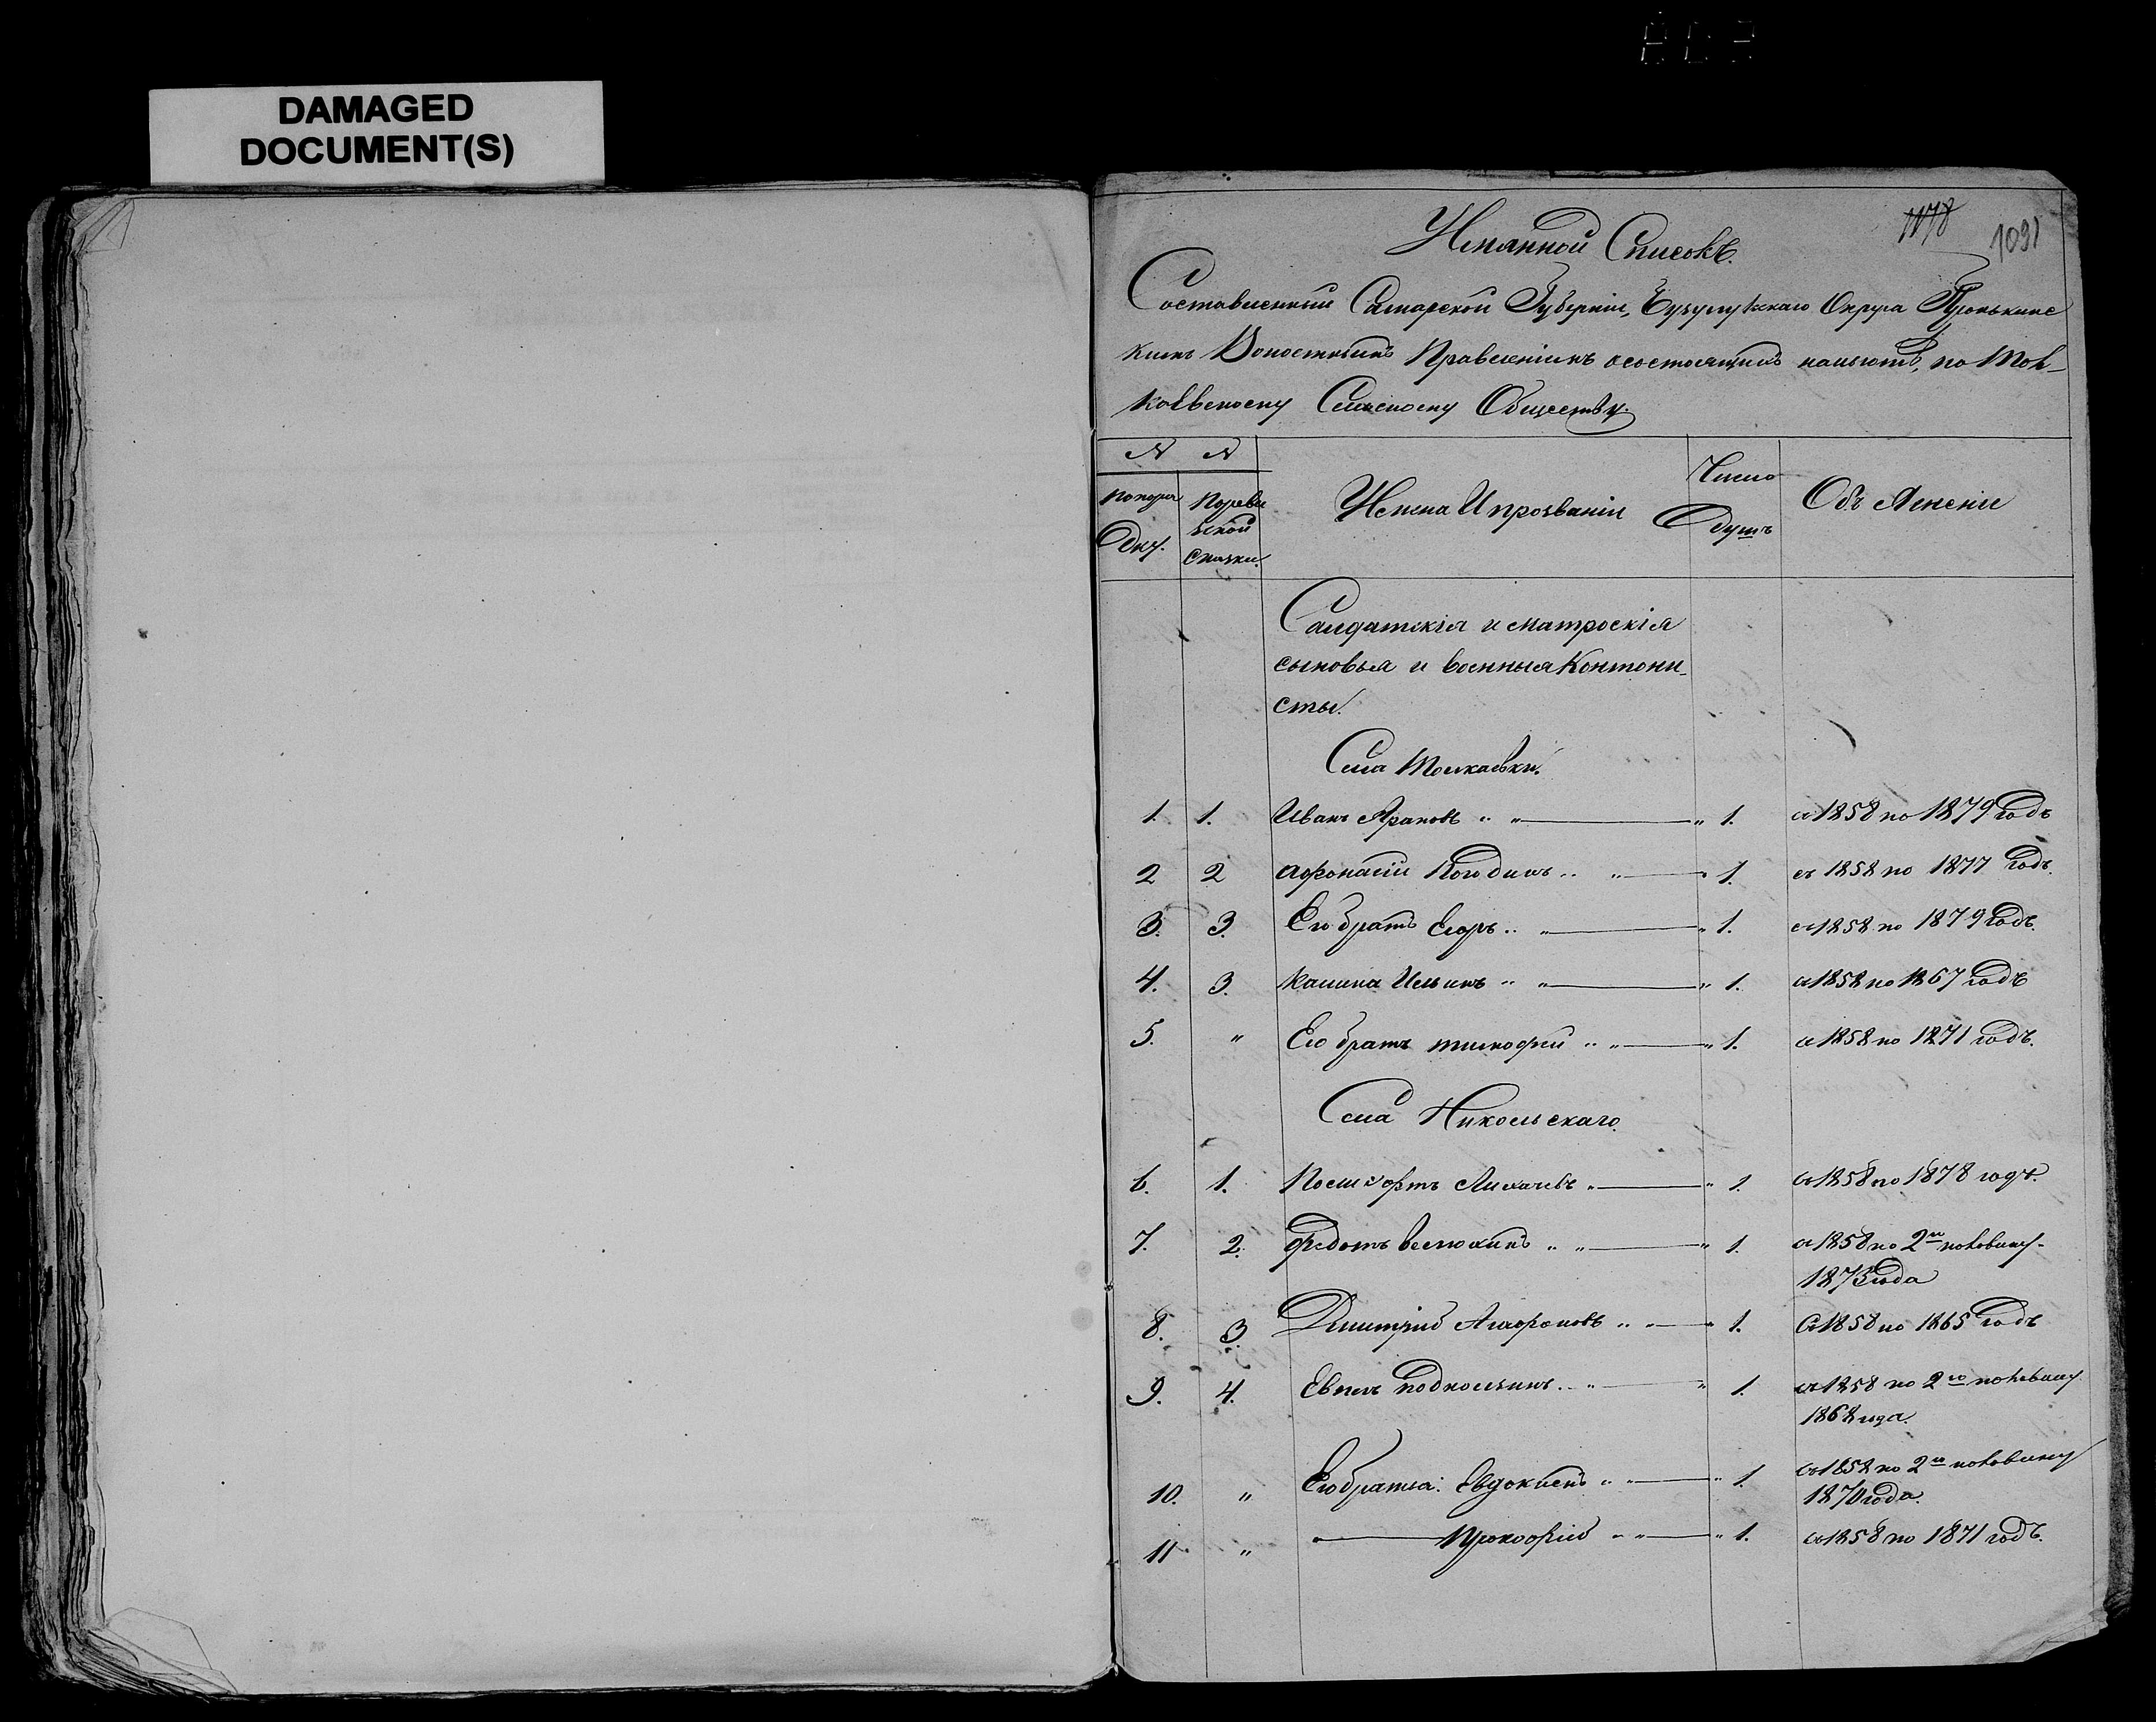 DAMAGED
DOCUMENT(S)
1178
1091
Имянной Списокъ.
Составленный Самарской Губерніи, Бузулукскаго Округа Пронькинс
кимъ Волостнымъ Правленіемъ о состоящихъ на льготѣ, по Тол-
каевскому Сельскому Обществу.
№ №
попоря
дку.
Пореви
зской
сказки.
Имена И прозваніи
Число
душъ
Объ Ясненіе
Салдатскія и матроскія
сыновья и военныя Контони-
сты.
Села Толкаевки.
1. 1. Иванъ Ярановъ " " " 1. съ 1858 по 1879 Годъ
2 2 Афонасій Кондинъ " " " 1. съ 1858 по 1877 Годъ.
3. 3. Его братъ Егоръ " " " 1. съ 1858 по 1879 Годъ.
4. 3. Калина Ильинъ " " " 1. съ 1858 по 1867 Годъ
5. " Его братъ тимофей " " " 1. съ 1858 по 1871 годъ.
Села Никольскаго.
6. 1. Лихачевъ " " 1. съ 1858 по 1878 годъ.
7. 2. Федотъ Веслюхинъ " " " 1. съ 1858 по 2ю половину
1873 года
8. 3. Димитрій Агафоновъ " " " 1. Съ 1858 по 1865 Годъ
9. 4. Евпелъ Подкользинъ " " " 1. съ 1858 по 2ю половину
1868 года.
10. " Его братья: Евдокимъ " " " 1. съ 1858 по 2ю половину
1870 года.
11 " " Прокофій " " " 1. съ 1858 по 1871 годъ.